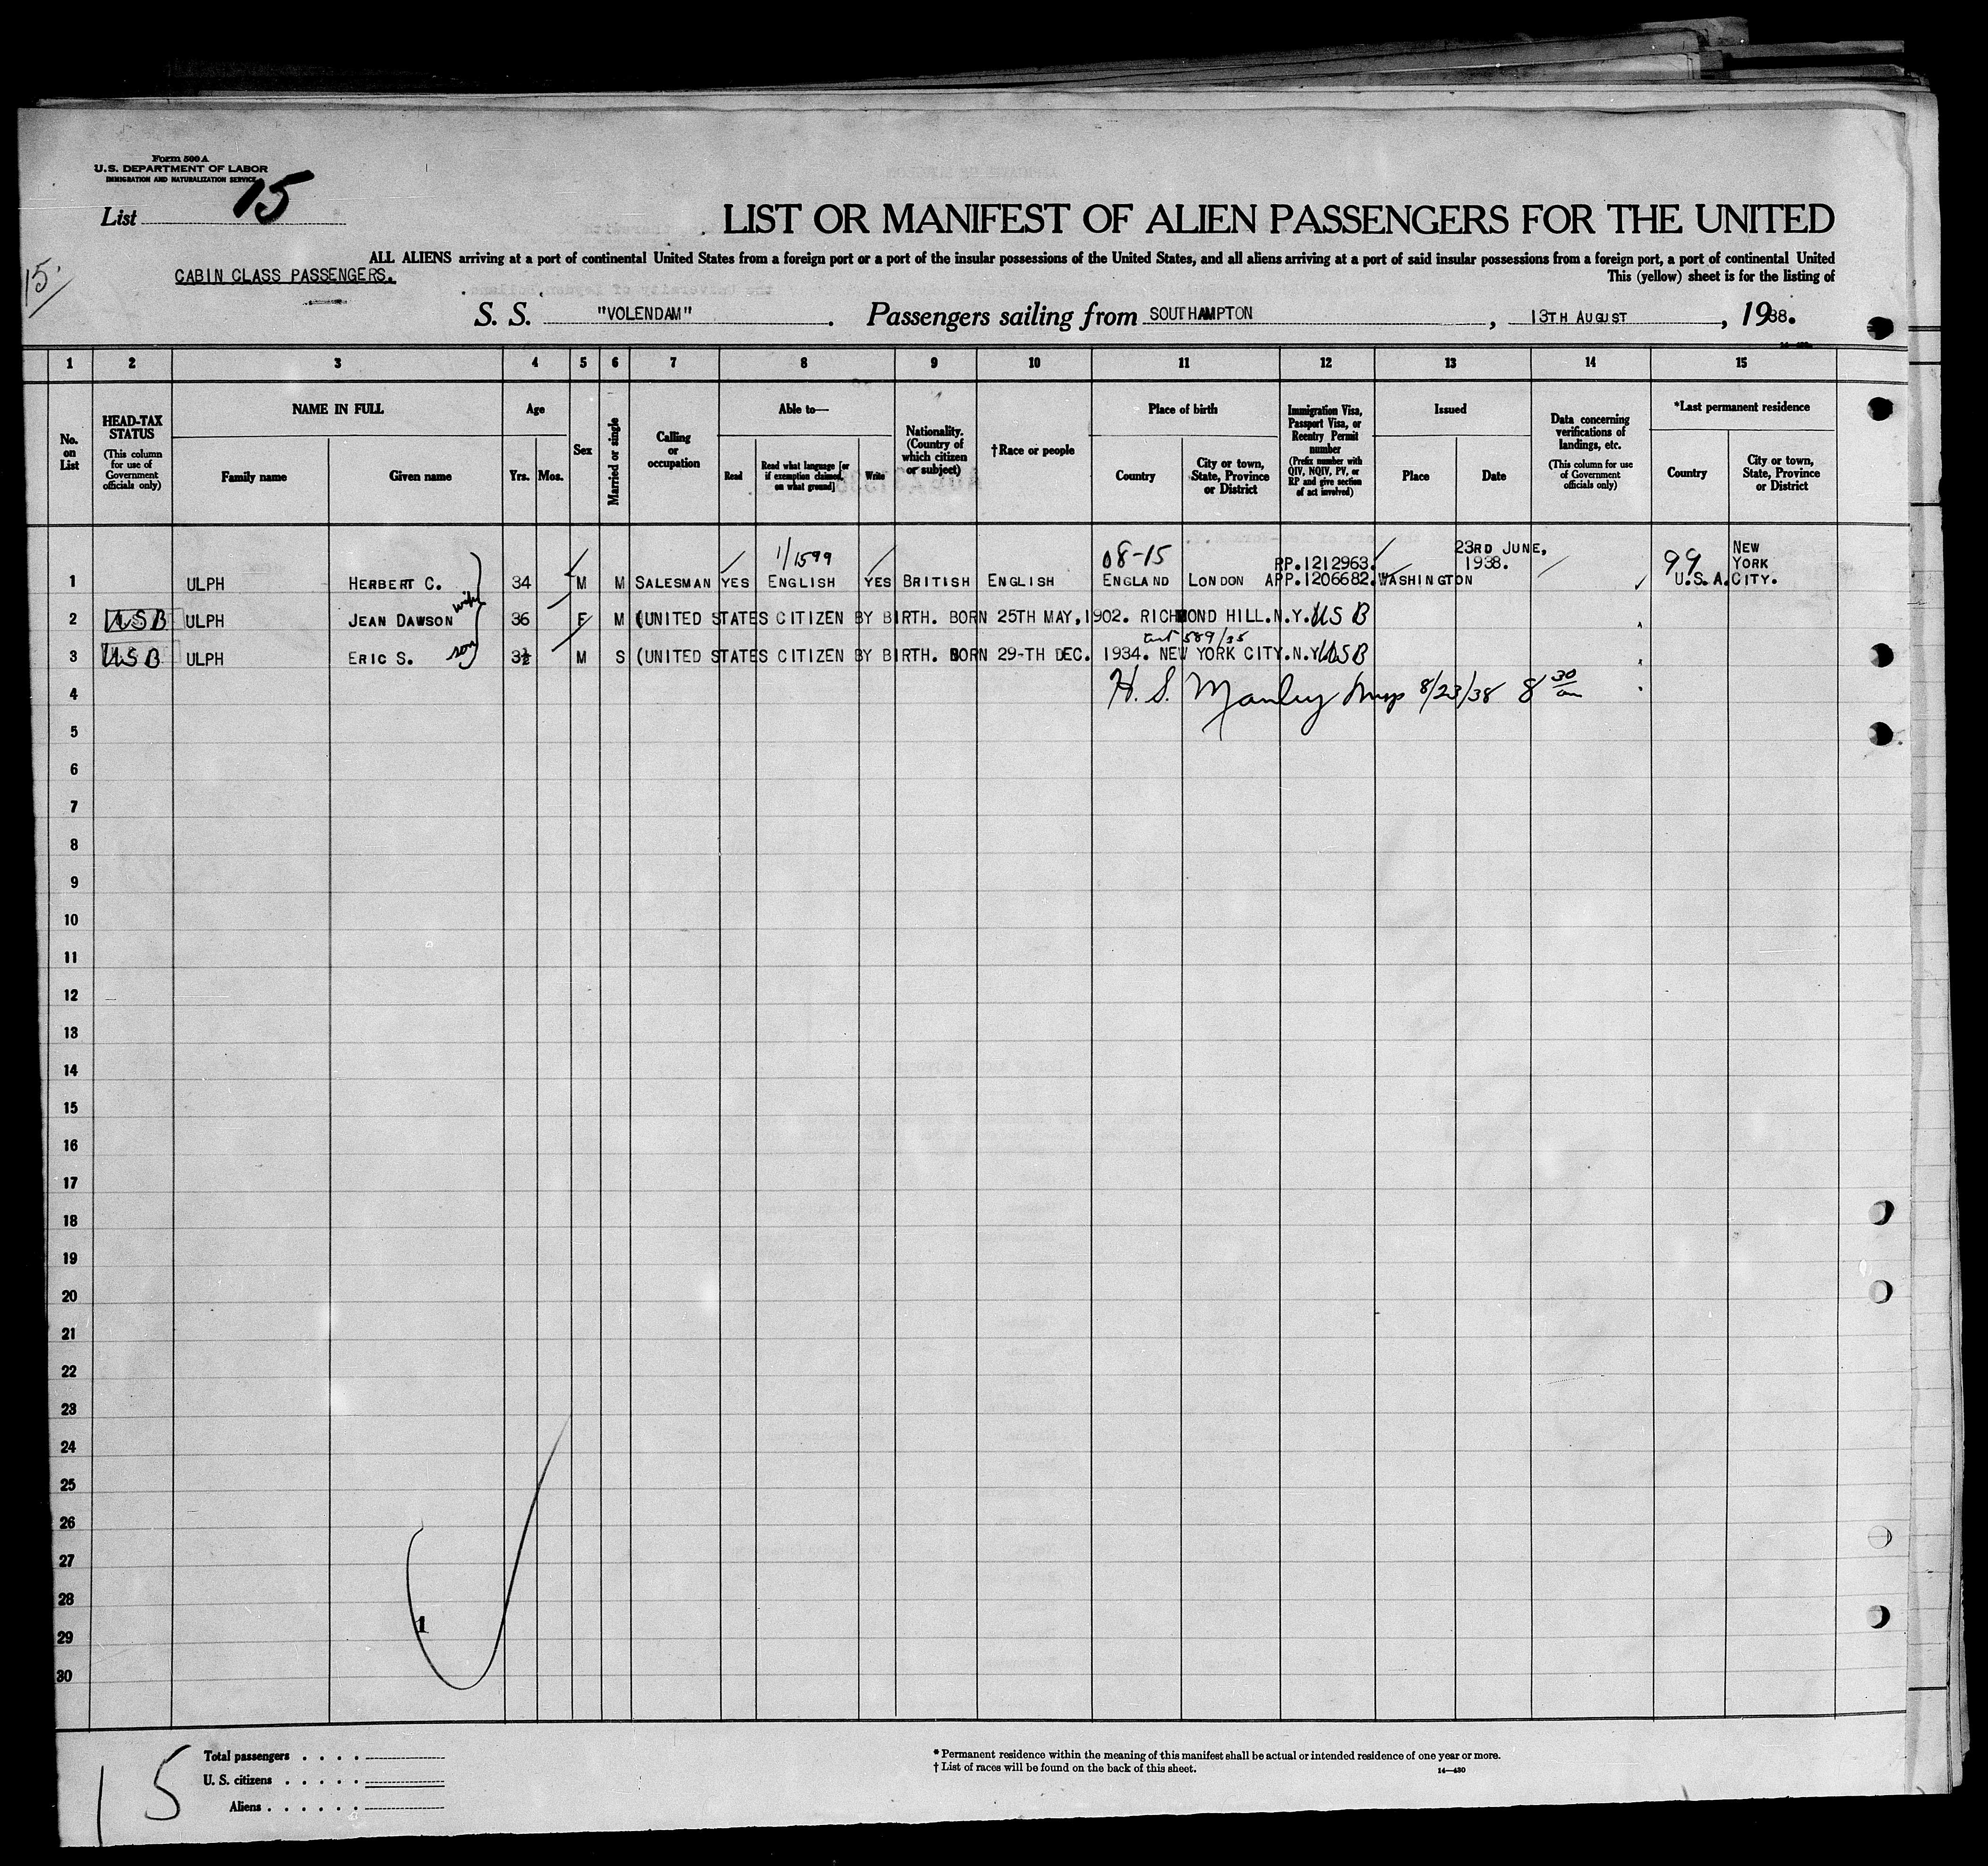 Form 500 A
U.S. DEPARTMENT OF LABOR
IMMIGRATION AND NATURALIZATION SERVICE
List 15
LIST OR MANIFEST OF ALIEN PASSENGERS FOR THE UNITED
ALL ALIENS arriving at a port of continental United States from a foreign port or a port of the insular possessions of the United States, and all aliens arriving at a port of said insular possessions from a foreign port, a port of continental United
15
CABIN CLASS PASSENGERS.
This (yellow) sheet is for the listing of
S. S. "VOLENDAM". Passengers sailing from SOUTHAMPTON, 13TH AUGUST, 1938.
1 2 3 4 5 6 7 8 9 10 11 12 13 14 15
No. on List
HEAD-TAX STATUS (This column for use of Government officials only)
NAME IN FULL
Family name
Given name
Age
Yrs. Mos.
Sex
Married or single
Calling or occupation
Able to—
Read
Read what language [or if exemption claimed, on what ground]
Write
Nationality. (Country of which citizen or subject)
†Race or people
Place of birth
Country
City or town, State, Province or District
Immigration Visa, Passport Visa, or Reentry Permit number (Prefix number with QIV, NQIV, PV, or RP and give section of act involved)
Issued
Place
Date
Data concerning verifications of landings, etc. (This column for use of Government officials only)
*Last permanent residence
Country
City or town, State, Province or District
1/1599 08-15 RP.1212963. 23RD JUNE, 1938. 99 NEW YORK
1 ULPH HERBERT C. 34 M M SALESMAN YES ENGLISH YES BRITISH ENGLISH ENGLAND LONDON APP.1206682. WASHINGTON U.S.A. CITY.
2 USB ULPH JEAN DAWSON wife 36 F M (UNITED STATES CITIZEN BY BIRTH. BORN 25TH MAY, 1902. RICHMOND HILL.N.Y. USB
589/35
3 USB ULPH ERIC S. son 3½ M S (UNITED STATES CITIZEN BY BIRTH. BORN 29-TH DEC. 1934. NEW YORK CITY.N.Y. USB
4 H. S. Manley Insp 8/23/38 8 30 am
5
6
7
8
9
10
11
12
13
14
15
16
17
18
19
20
21
22
23
24
25
26
27
28
1
29
30
15
Total passengers . . . .
U. S. citizens . . . . .
Aliens . . . . . .
* Permanent residence within the meaning of this manifest shall be actual or intended residence of one year or more.
† List of races will be found on the back of this sheet.
14—430